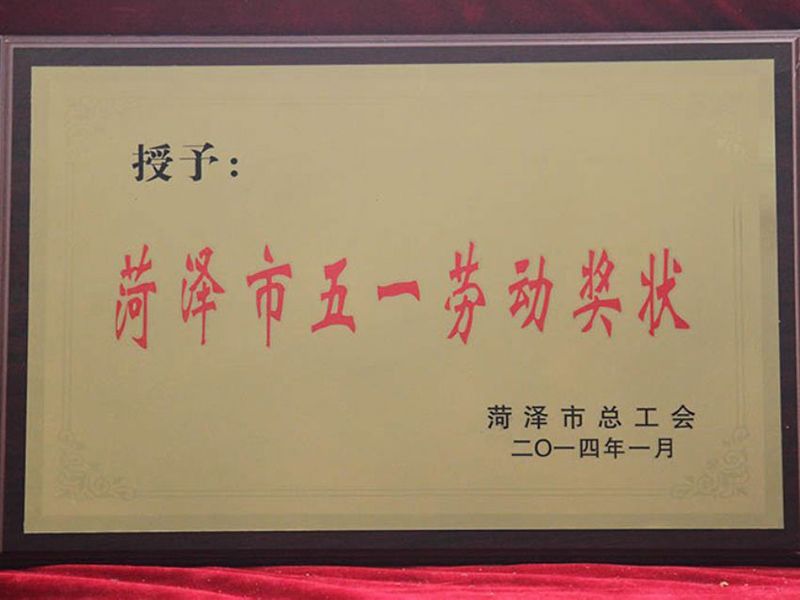 授予：
菏泽市五一劳动奖状
菏泽市总工会
二〇一四年一月